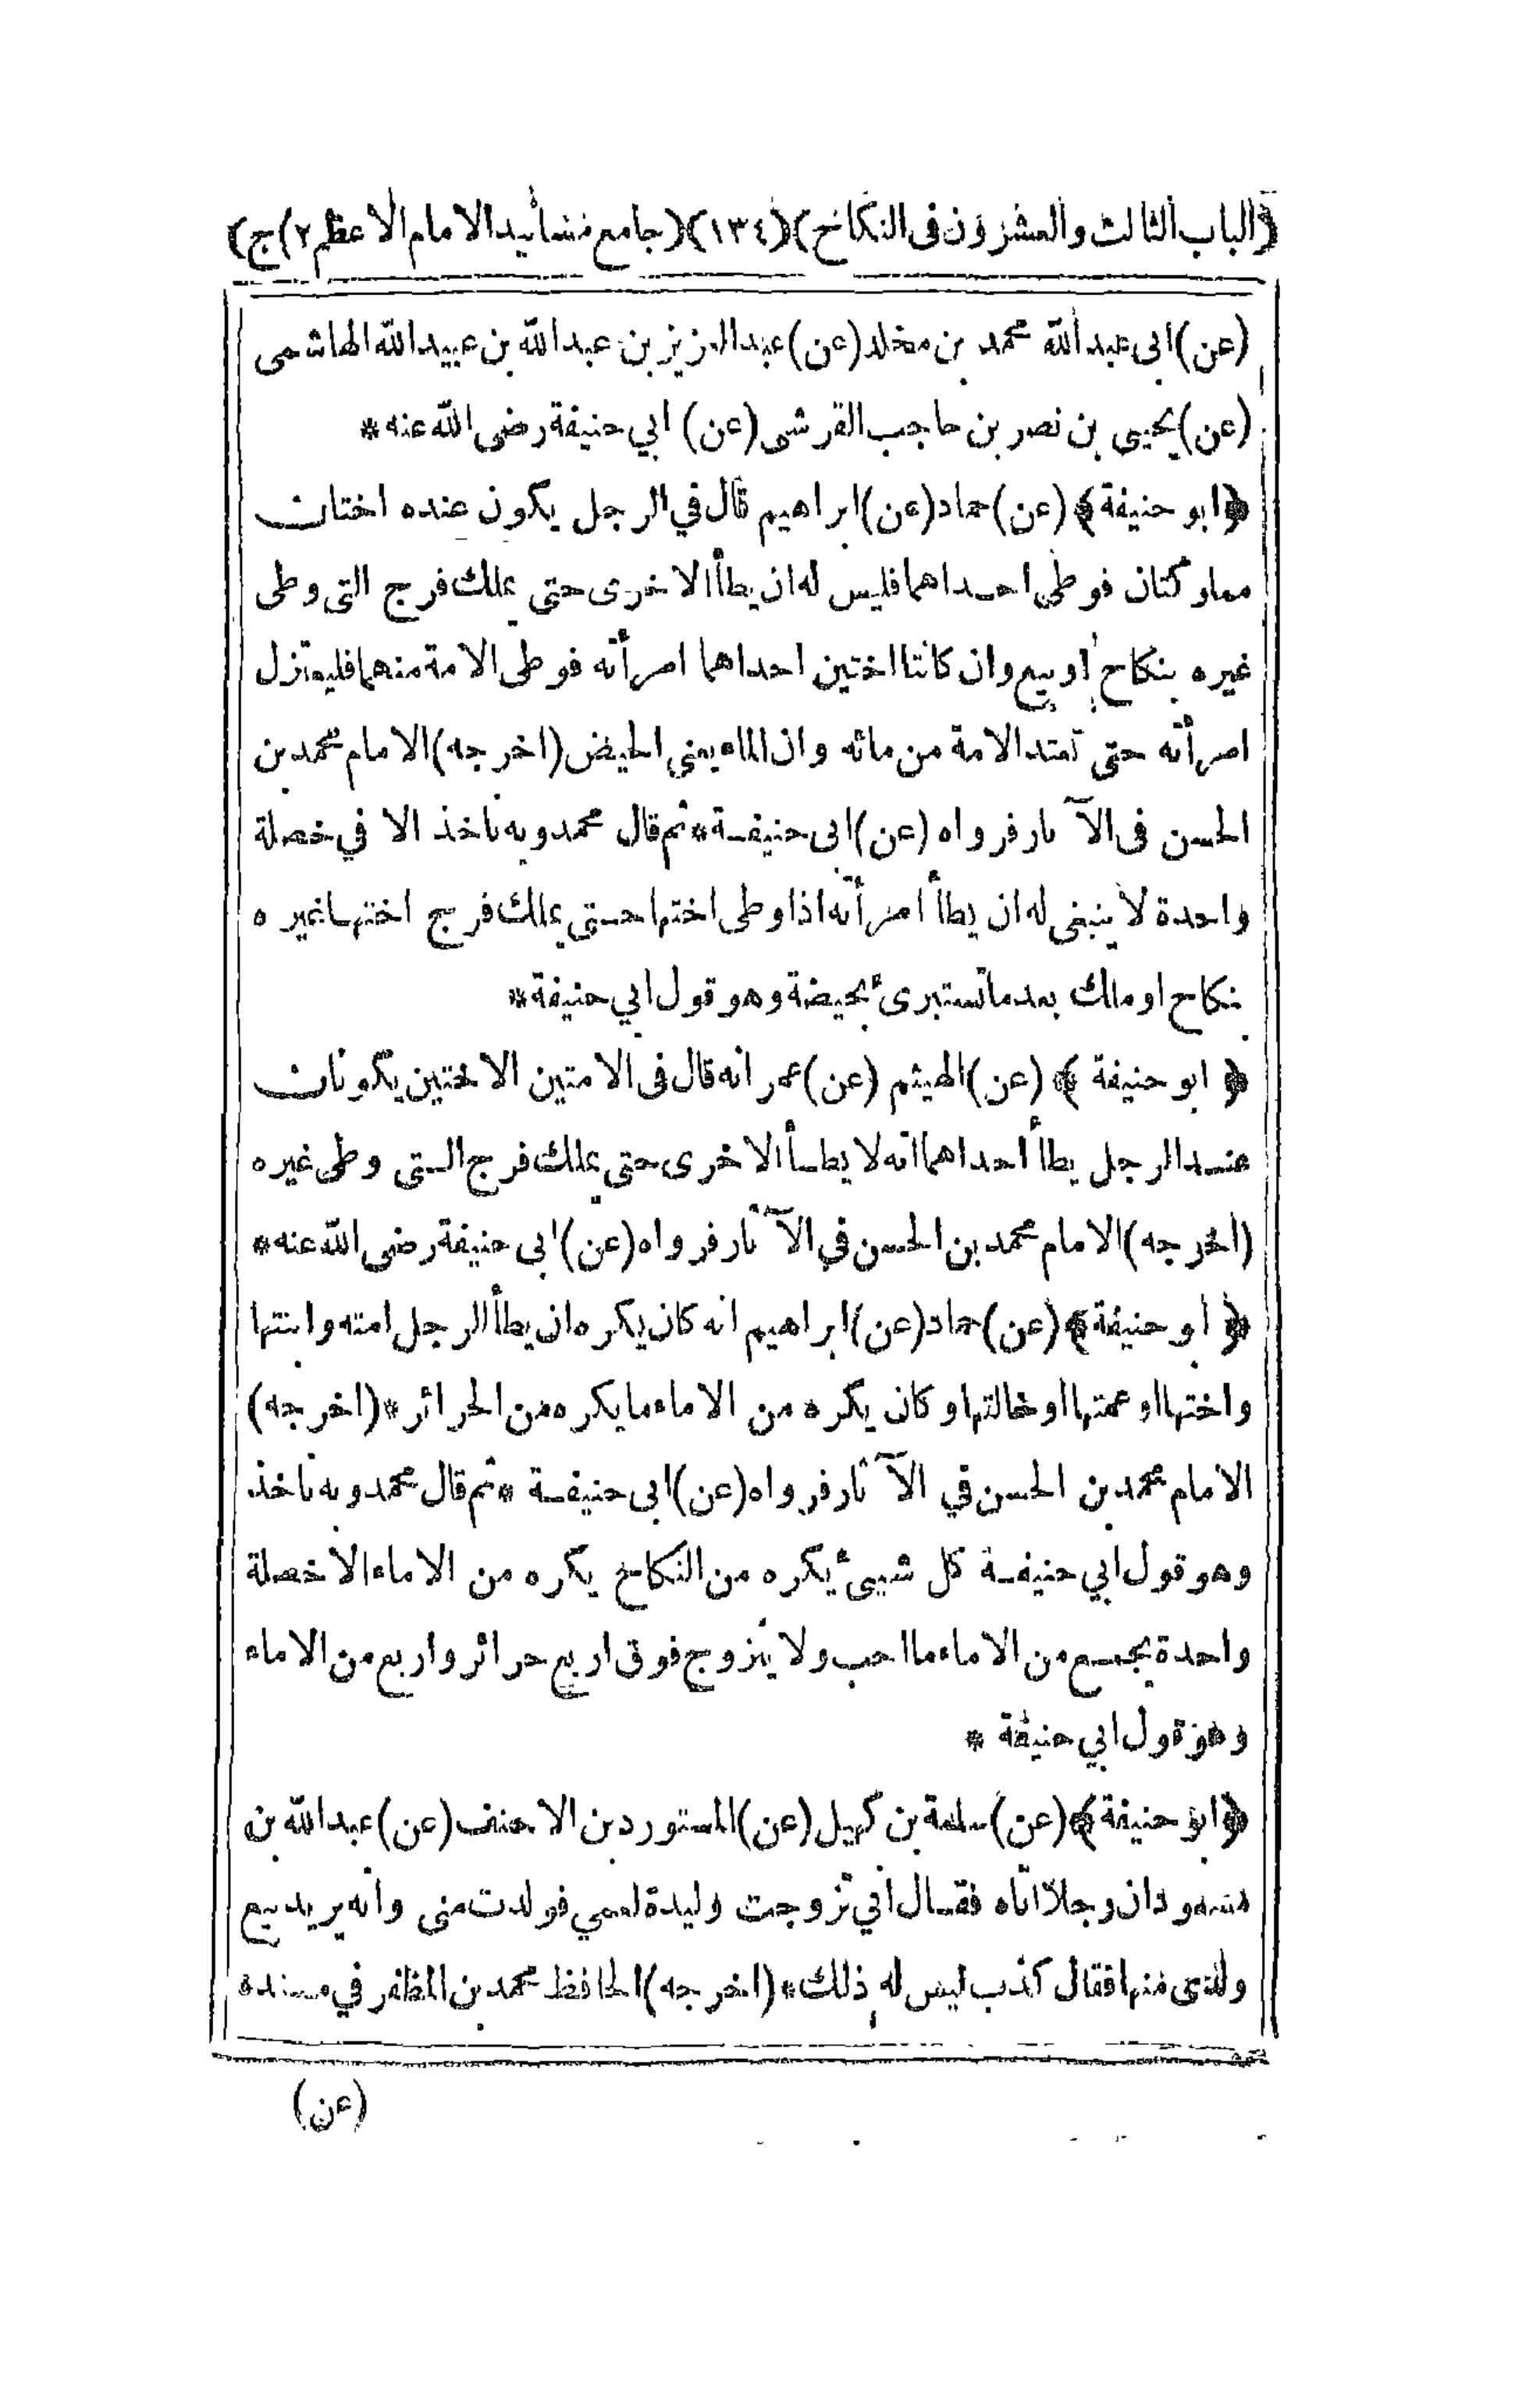 (الباب الثالث والعشرون فى النكاح) (١٣٤) (جامع مسانيد الامام الاعظم ٢) ج)
(عن) ابى عبد الله محمد بن مخلد (عن) عبد العزيز بن عبد الله بن عبيد الله الهاشمى
(عن) يحيى بن نصر بن حاجب القرشى (عن) ابي حنيفة رضى الله عنه *
﴿ابو حنيفة﴾ (عن) حماد (عن) ابراهيم قال في الرجل يكون عنده اختان
مملوكتان فوطى احداهما فليس له ان يطأ الاخرى حتى يملك فرج التى وطى
غيره بنكاح او بيع وان كانتا اختين احداهما امرأته فوطى الامة منهما فليعتزل
امرأته حتى تعتد الامة من مائه وان الماء يعنى الحيض (اخرجه) الامام محمد بن
الحسن فى الآثار فرواه (عن) ابى حنيفة * ثم قال محمد وبه ناخذ الا في خصلة
واحدة لا ينبغى له ان يطأ امرأته اذا وطى اختها حتى يملك فرج اختها غيره
بنكاح او ملك بعد ما تستبرىٔ بحيضة وهو قول ابي حنيفة *
﴿ابو حنيفة﴾ (عن) الهيثم (عن) عمر انه قال فى الامتين الاختين يكونان
عند الرجل يطأ احداهما انه لا يطأ الاخرى حتى يملك فرج التى وطى غيره
(اخرجه) الامام محمد بن الحسن في الآثار فرواه (عن) ابى حنيفة رضى الله عنه *
﴿ابو حنيفة﴾ (عن) حماد (عن) ابراهيم انه كان يكره ان يطأ الرجل امته وابنتها
واختها او عمتها او خالتها وكان يكره من الاماء ما يكره من الحرائر * (اخرجه)
الامام محمد بن الحسن في الآثار فرواه (عن) ابى حنيفة * ثم قال محمد وبه ناخذ
وهو قول ابي حنيفة كل شيىٔ يكره من النكاح يكره من الاماء الا خصلة
واحدة يجمع من الاماء ما احب ولا يتزوج فوق اربع حرائر واربع من الاماء
وهو قول ابي حنيفة *
﴿ابو حنيفة﴾ (عن) سلمة بن كهيل (عن) المستورد بن الاحنف (عن) عبد الله بن
مسعود ان رجلا اتاه فقال انى تزوجت وليدة لعمي فولدت منى وانه يريد بيع
ولدى منها فقال كذب ليس له ذلك * (اخرجه) الحافظ محمد بن المظفر في مسنده
(عن)